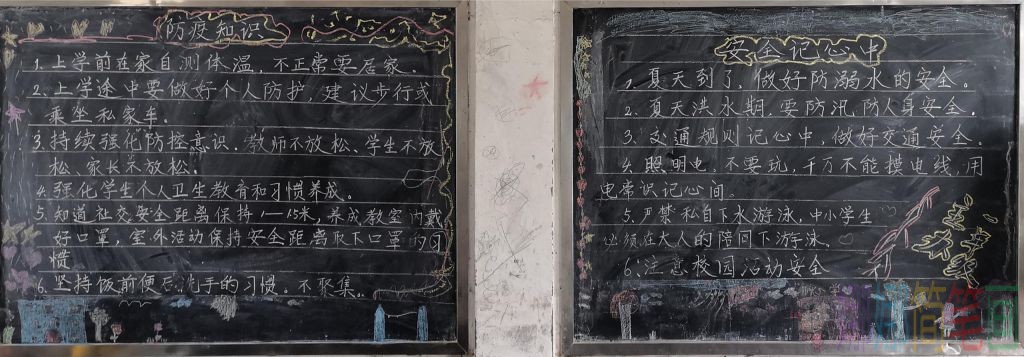 防疫知识
1. 上学前在家自测体温，不正常要居家。
2. 上学途中要做好个人防护，建议步行或
乘坐私家车。
3. 持续强化防控意识。教师不放松、学生不放
松、家长不放松。
4. 强化学生个人卫生教育和习惯养成。
5. 知道社交安全距离保持1—1.5米，养成教室内戴
好口罩，室外活动保持安全距离取下口罩的习
惯
6. 坚持饭前便后洗手的习惯。不聚集。
安全记心中
1. 夏天到了，做好防溺水的安全。
2. 夏天洪水期，要防汛防人身安全。
3. 交通规则记心中，做好交通安全。
4. 照明电，不要玩，千万不能摸电线，用
电常识记心间。
5. 严禁私自下水游泳，中小学生
必须在大人的陪同下游泳。
6. 注意校园活动安全
简笔画